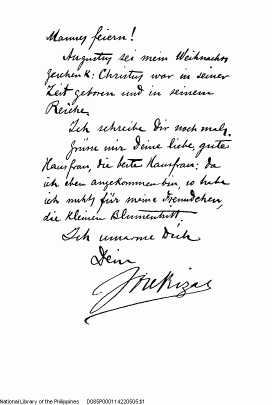 Mannes feiern!
Augustus sei mein Weihnachts
geschenk: Christus war in seiner
Zeit geboren und in seinem
Reiche.
Ich schreibe Dir nochmals.
Grüsse mir Deine liebe, gute
Hausfrau, die beste Hausfrau; da
ich eben angekommen bin, so habe
ich nichts für meine Freundchen,
die kleinen Blumentritt.
Ich umarme Dich
Dein
José Rizal
National Library of the Philippines